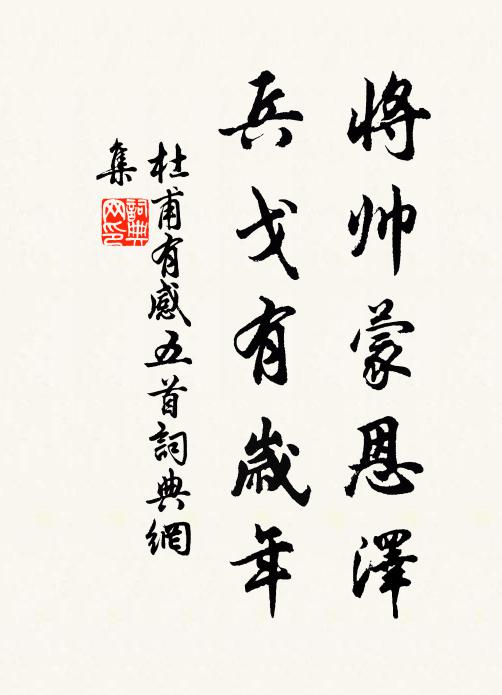 將帅蒙恩澤
兵戈有歲年
杜甫有感五首詞典網
集
詞典
网印